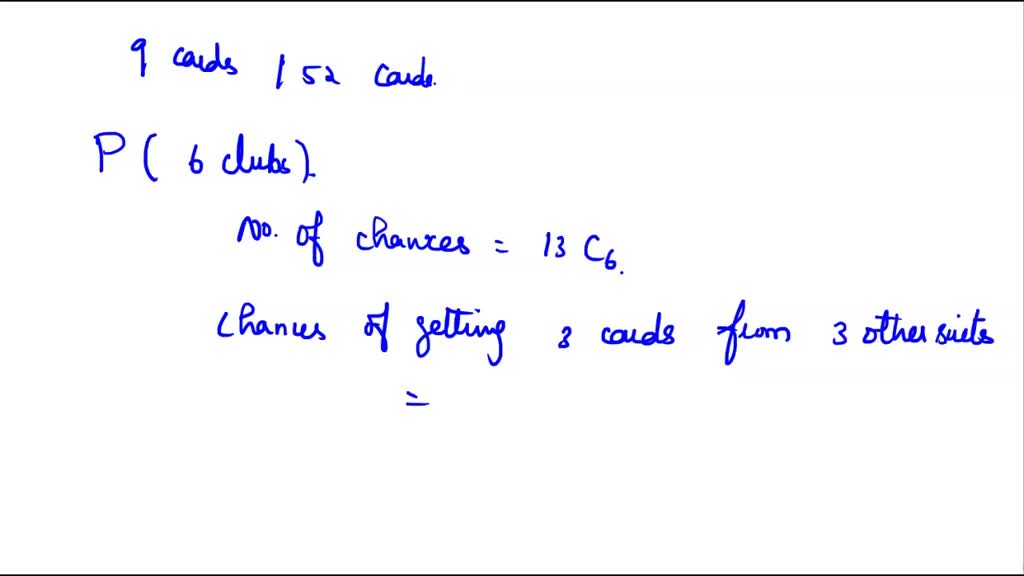 9 cards / 52 cards.
P ( 6 clubs ).
No. of chances = 13 C6.
Chances of getting 3 cards from 3 other suits
=